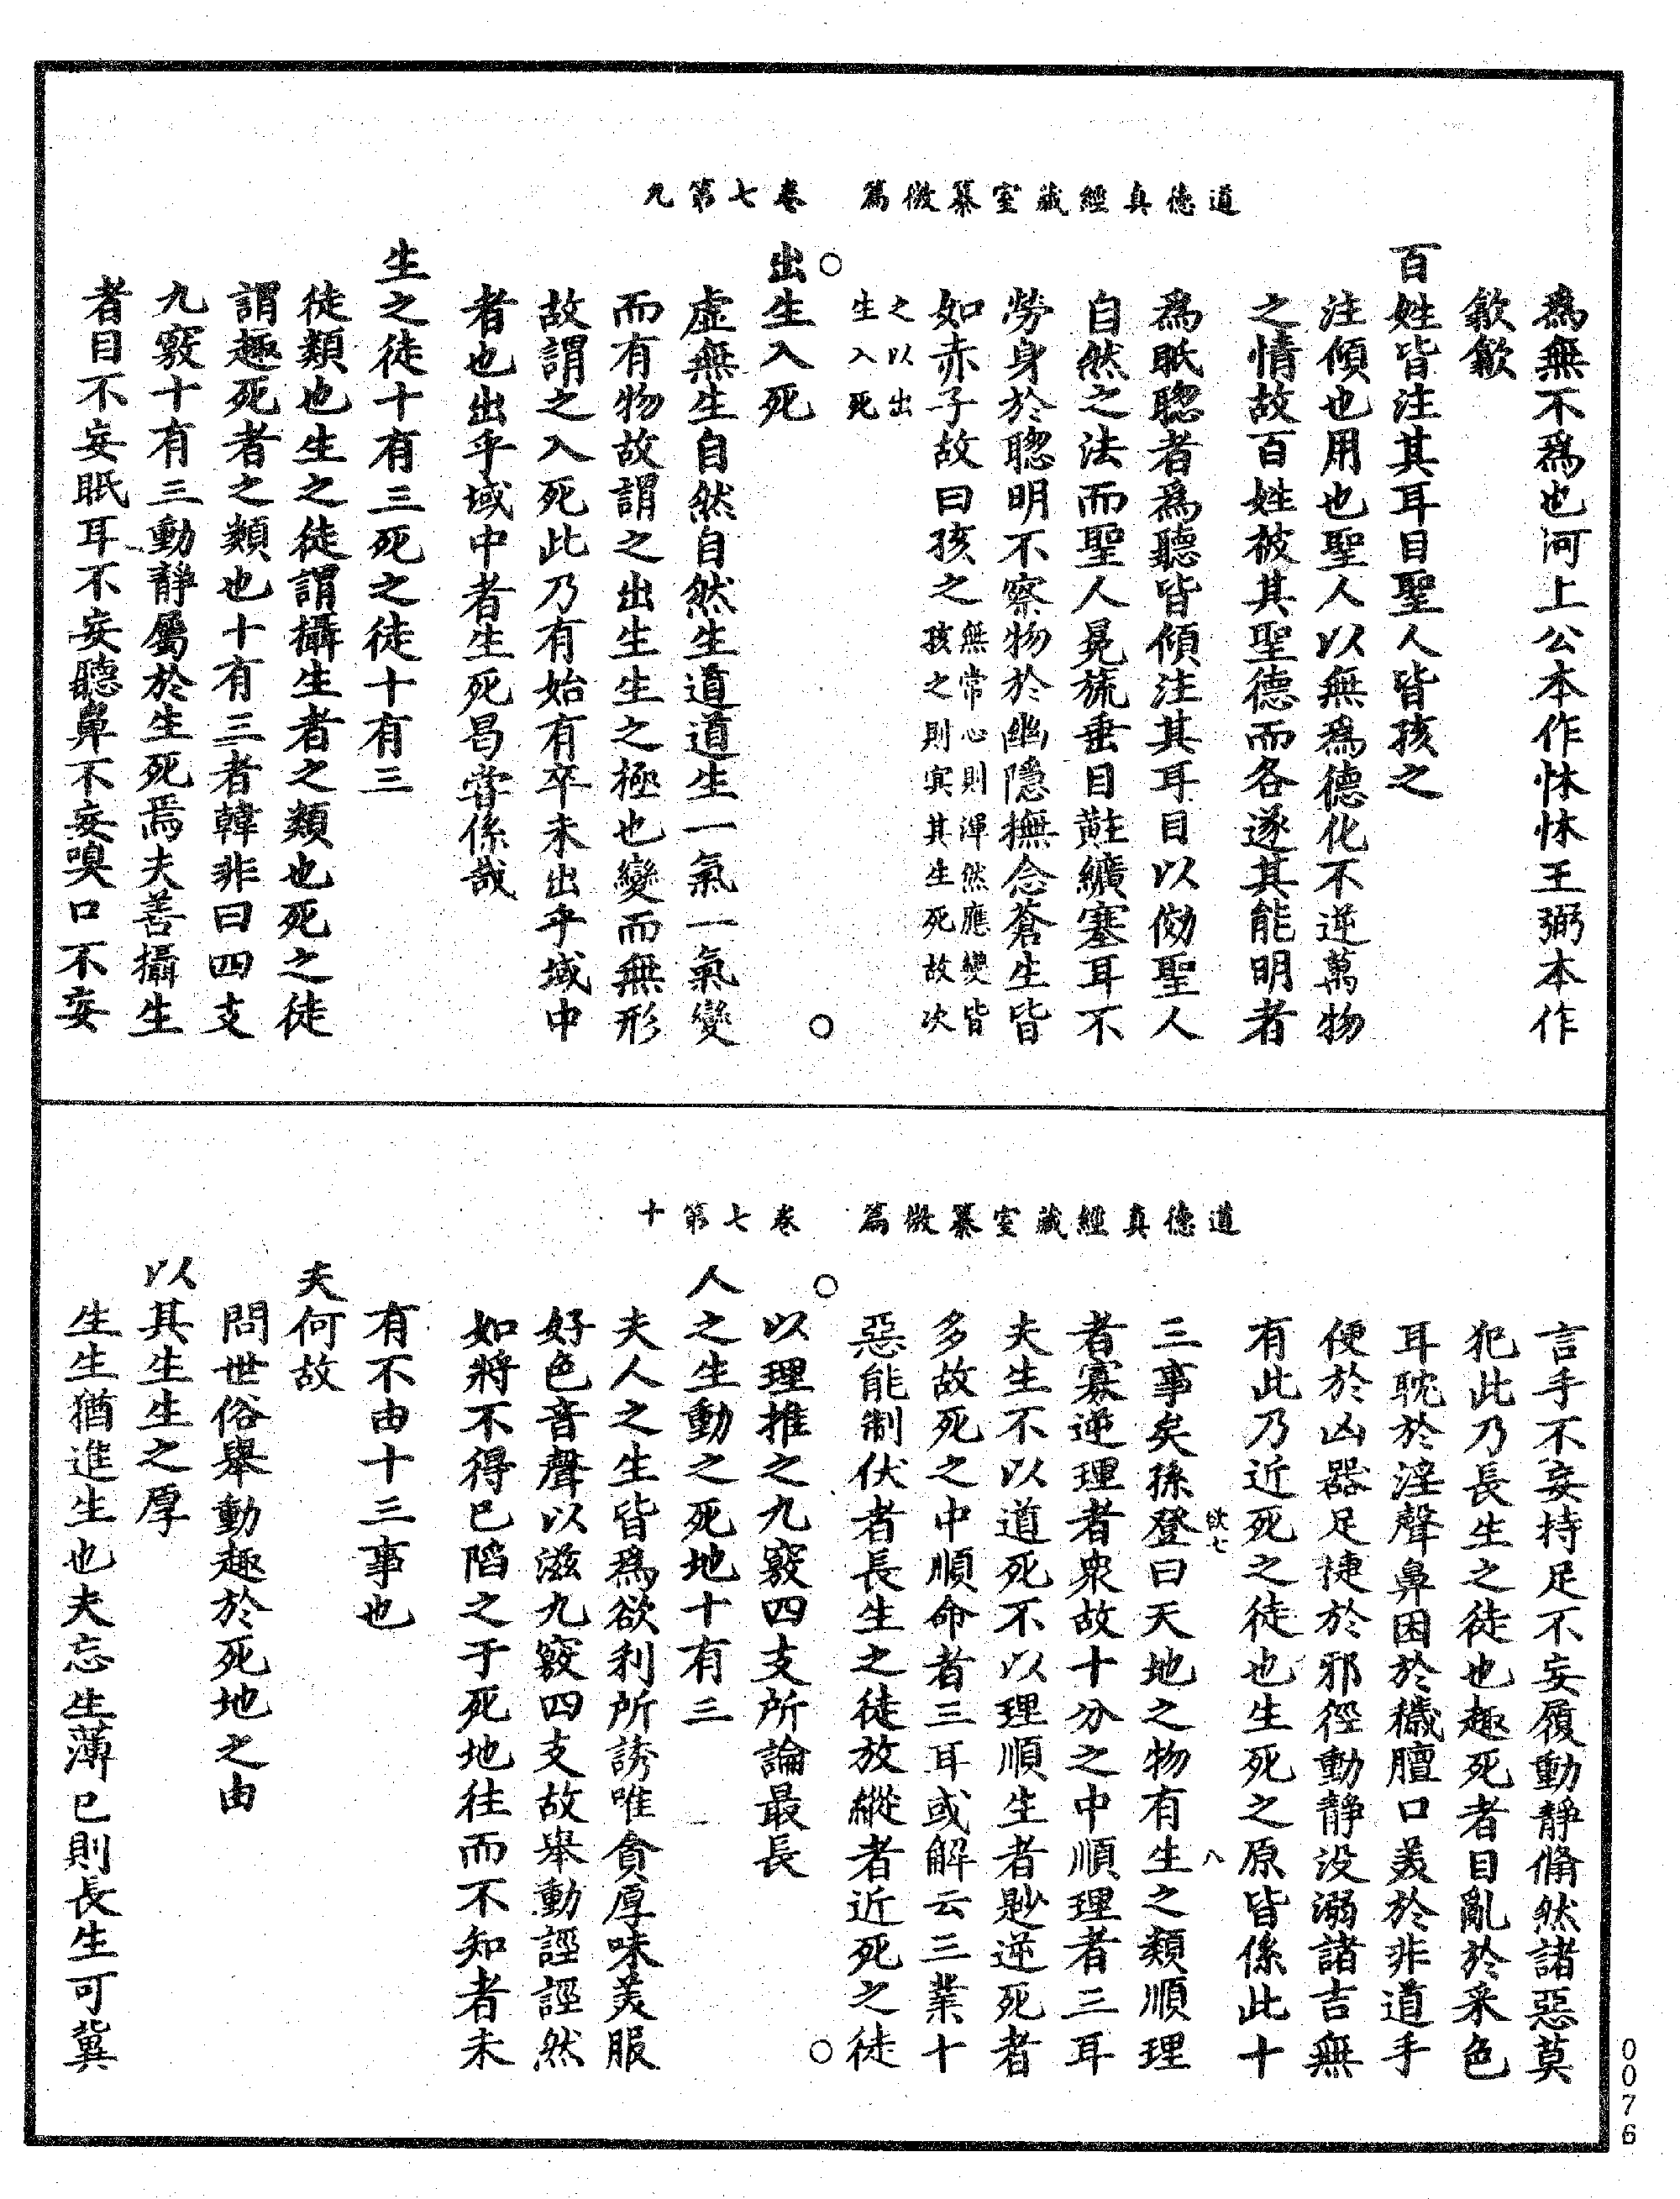 道德真經藏室纂微篇　卷七第九
爲無不爲也河上公本作怵怵王弼本作
歙歙
百姓皆注其耳目聖人皆孩之
注傾也用也聖人以無爲德化不逆萬物
之情故百姓被其聖德而各遂其能明者
爲眂聦者爲聽皆傾注其耳目以俲聖人
自然之法而聖人冕旒垂目黈纊塞耳不
勞身於聦明不察物於幽隱撫念蒼生皆
如赤子故曰孩之無常心則渾然應變皆
孩之則㝠其生死故次
之以出
生入死
○
出生入死
虛無生自然自然生道道生一氣一氣變
而有物故謂之出生生之極也變而無形
故謂之入死此乃有始有卒未出乎域中
者也出乎域中者生死曷甞係哉
生之徒十有三死之徒十有三
徒類也生之徒謂攝生者之類也死之徒
謂趣死者之類也十有三者韓非曰四支
九竅十有三動靜屬於生死焉夫善攝生
者目不妄眂耳不妄聽鼻不妄嗅口不妄
道德真經藏室纂微篇　卷七第十
言手不妄持足不妄履動靜翛然諸惡莫
犯此乃長生之徒也趣死者目亂於采色
耳耽於淫聲鼻困於穢膻口美於非道手
便於凶器足捷於邪徑動靜没溺諸吉無
有此乃近死之徒也生死之原皆係此十
欲七　八
三事矣孫登曰天地之物有生之類順理
者寡逆理者衆故十分之中順理者三耳
夫生不以道死不以理順生者尠逆死者
多故死之中順命者三耳或解云三業十
惡能制伏者長生之徒放縱者近死之徒
○
以理推之九竅四支所論最長
人之生動之死地十有三
夫人之生皆爲欲利所誘唯貪厚味美服
好色音聲以滋九竅四支故舉動誙誙然
如將不得已陷之于死地往而不知者未
有不由十三事也
夫何故
問世俗舉動趣於死地之由
以其生生之厚
生生猶進生也夫忘生薄已則長生可冀
0076